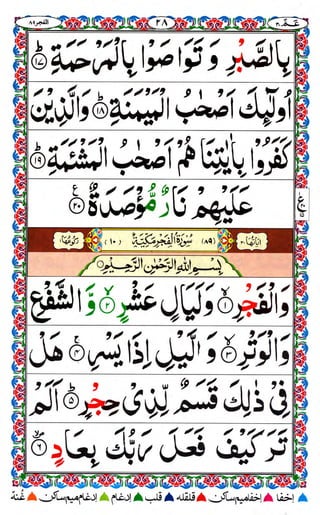 عَمَّ ٣٠ ٢٨ الفجر ٨٩
بِالصَّبْرِ وَ تَوَاصَوْا بِالْمَرْحَمَةِ ﴿١٧﴾
اُولٰٓئِكَ اَصْحٰبُ الْمَيْمَنَةِ ﴿١٨﴾ وَالَّذِيْنَ
كَفَرُوْا بِاٰيٰتِنَا هُمْ اَصْحٰبُ الْمَشْـَٔمَةِ ﴿١٩﴾
عَلَيْهِمْ نَارٌ مُّؤْصَدَةٌ ﴿٢٠﴾
اٰيَاتُهَا ٣٠ (٨٩) سُوْرَةُ الْفَجْرِ مَكِّيَّةٌ (١٠) رُكُوْعُهَا ١
بِسْمِ اللّٰهِ الرَّحْمٰنِ الرَّحِيْمِ
وَالْفَجْرِ ﴿١﴾ وَلَيَالٍ عَشْرٍ ﴿٢﴾ وَّ الشَّفْعِ
وَالْوَتْرِ ﴿٣﴾ وَ الَّيْلِ اِذَا يَسْرِ ﴿٤﴾ هَلْ
فِيْ ذٰلِكَ قَسَمٌ لِّذِيْ حِجْرٍ ﴿٥﴾ اَلَمْ
تَرَ كَيْفَ فَعَلَ رَبُّكَ بِعَادٍ ﴿٦﴾
اخفا اخفا میم ساکن قلقله قلب ادغام ادغام میم ساکن غنة